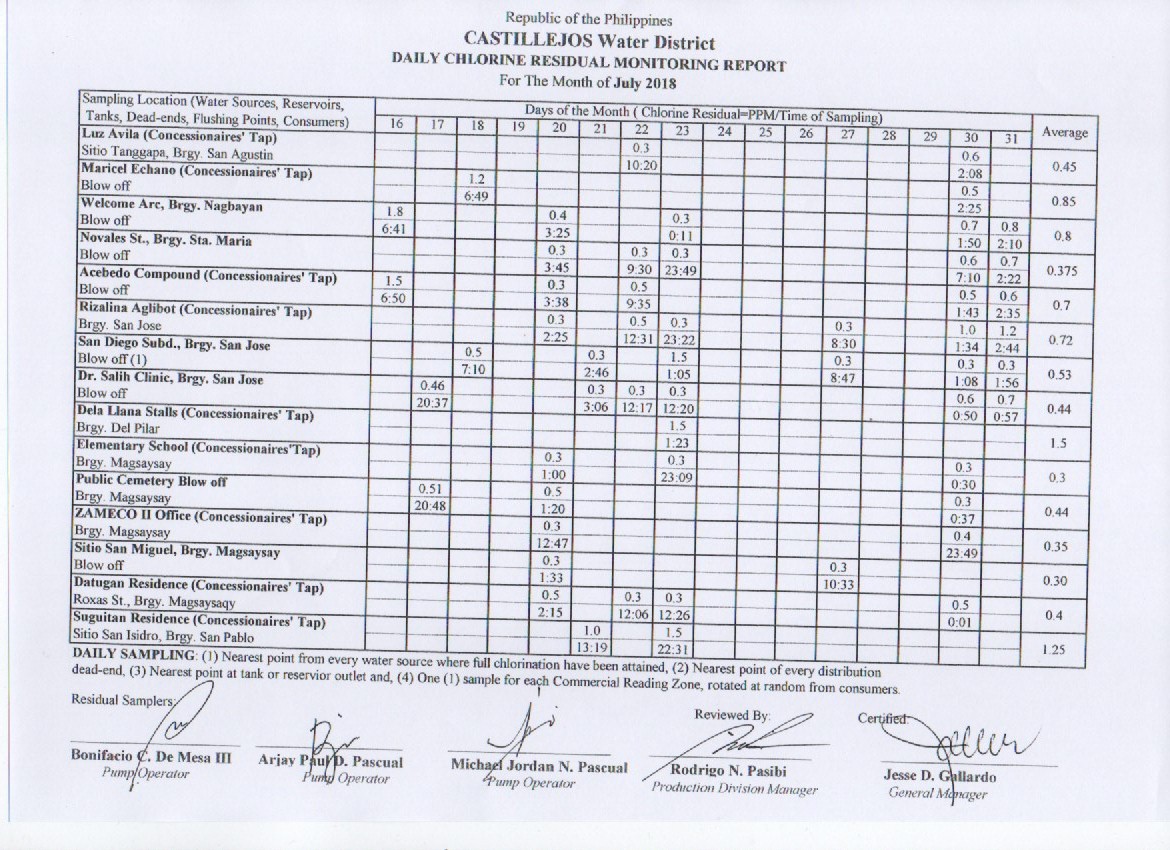 Republic of the Philippines
CASTILLEJOS Water District
DAILY CHLORINE RESIDUAL MONITORING REPORT
For The Month of July 2018
Sampling Location (Water Sources, Reservoirs, Tanks, Dead-ends, Flushing Points, Consumers)
Days of the Month ( Chlorine Residual=PPM/Time of Sampling)
Average
16 17 18 19 20 21 22 23 24 25 26 27 28 29 30 31
Luz Avila (Concessionaires' Tap) 0.3 0.6 0.45
Sitio Tanggapa, Brgy. San Agustin 10:20 2:08
Maricel Echano (Concessionaires' Tap) 1.2 0.5 0.85
Blow off 6:49 2:25
Welcome Arc, Brgy. Nagbayan 1.8 0.4 0.3 0.7 0.8 0.8
Blow off 6:41 3:25 0:11 1:50 2:10
Novales St., Brgy. Sta. Maria 0.3 0.3 0.3 0.6 0.7 0.375
Blow off 3:45 9:30 23:49 7:10 2:22
Acebedo Compound (Concessionaires' Tap) 1.5 0.3 0.5 0.5 0.6 0.7
Blow off 6:50 3:38 9:35 1:43 2:35
Rizalina Aglibot (Concessionaires' Tap) 0.3 0.5 0.3 0.3 1.0 1.2 0.72
Brgy. San Jose 2:25 12:31 23:22 8:30 1:34 2:44
San Diego Subd., Brgy. San Jose 0.5 0.3 1.5 0.3 0.3 0.3 0.53
Blow off (1) 7:10 2:46 1:05 8:47 1:08 1:56
Dr. Salih Clinic, Brgy. San Jose 0.46 0.3 0.3 0.3 0.6 0.7 0.44
Blow off 20:37 3:06 12:17 12:20 0:50 0:57
Dela Llana Stalls (Concessionaires' Tap) 1.5 1.5
Brgy. Del Pilar 1:23
Elementary School (Concessionaires'Tap) 0.3 0.3 0.3 0.3
Brgy. Magsaysay 1:00 23:09 0:30
Public Cemetery Blow off 0.51 0.5 0.3 0.44
Brgy. Magsaysay 20:48 1:20 0:37
ZAMECO II Office (Concessionaires' Tap) 0.3 0.4 0.35
Brgy. Magsaysay 12:47 23:49
Sitio San Miguel, Brgy. Magsaysay 0.3 0.3 0.30
Blow off 1:33 10:33
Datugan Residence (Concessionaires' Tap) 0.5 0.3 0.3 0.5 0.4
Roxas St., Brgy. Magsaysaqy 2:15 12:06 12:26 0:01
Suguitan Residence (Concessionaires' Tap) 1.0 1.5 1.25
Sitio San Isidro, Brgy. San Pablo 13:19 22:31
DAILY SAMPLING: (1) Nearest point from every water source where full chlorination have been attained, (2) Nearest point of every distribution
dead-end, (3) Nearest point at tank or reservior outlet and, (4) One (1) sample for each Commercial Reading Zone, rotated at random from consumers.
Residual Samplers:
Reviewed By:
Certified:
Bonifacio C. De Mesa III
Pump Operator
Arjay Paul D. Pascual
Pump Operator
Michael Jordan N. Pascual
Pump Operator
Rodrigo N. Pasibi
Production Division Manager
Jesse D. Gallardo
General Manager